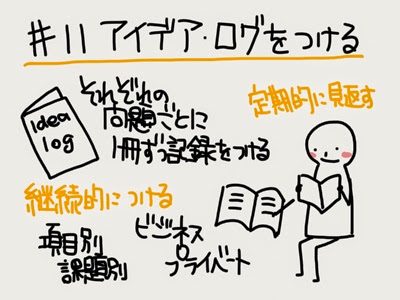 #11 アイデア・ログをつける
idea
log
それぞれの
問題ごとに
1冊ずつ記録をつける
定期的に見返す
継続的につける
項目別
課題別
ビジネス
プライベート